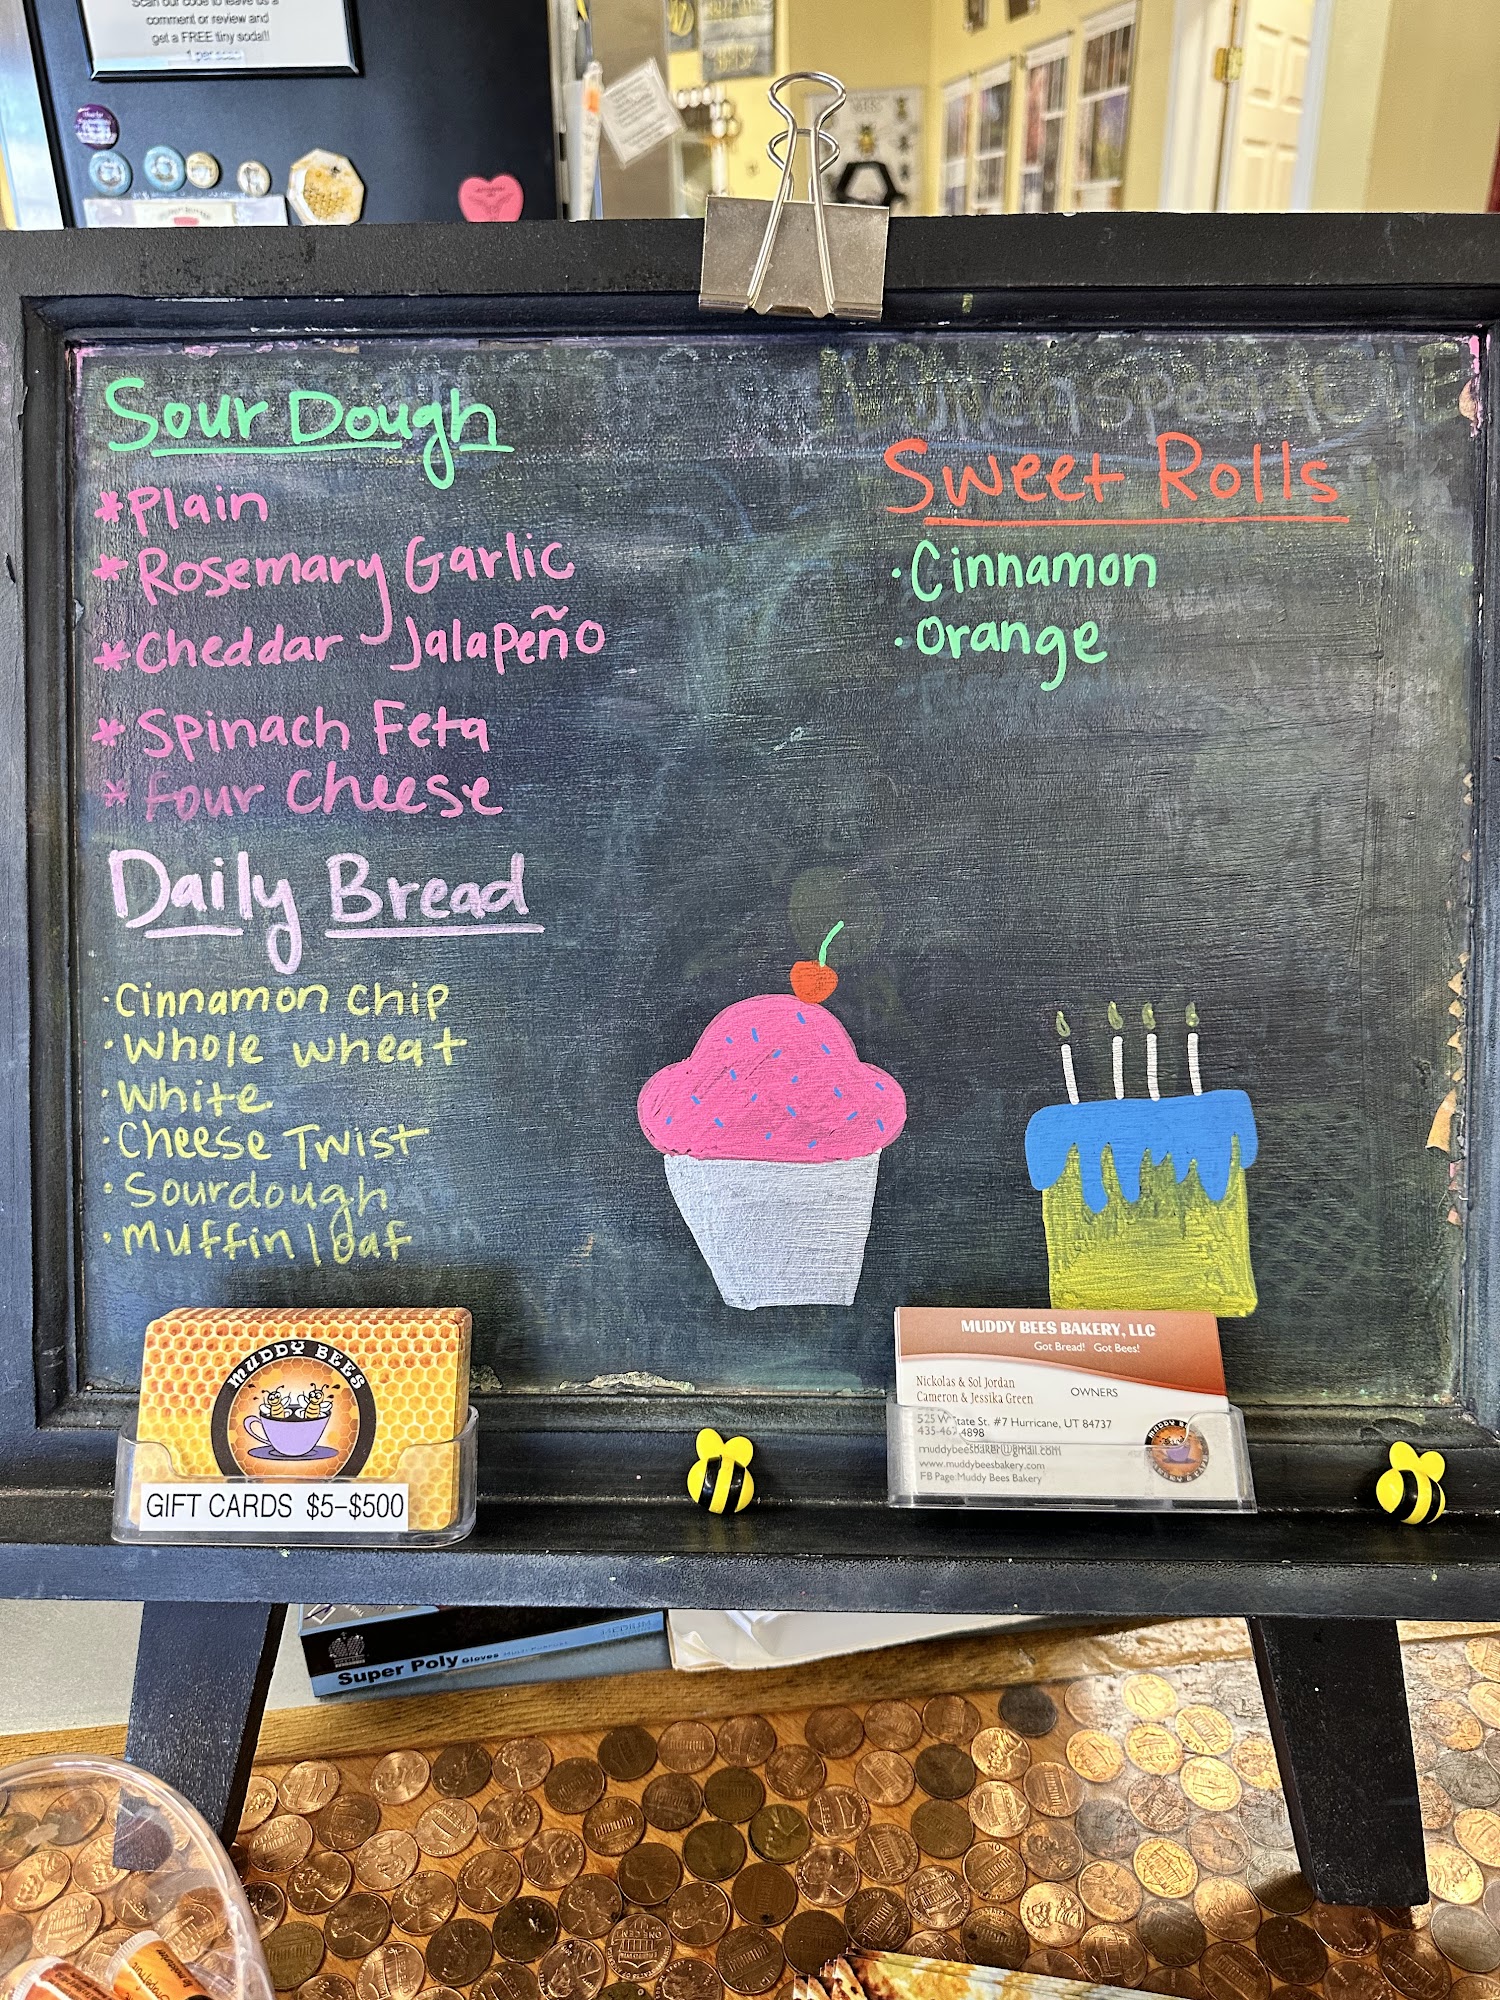 Scan our code to leave us a
comment or review and
get a FREE tiny soda!!
1 per scan
Lunch Special
Sour Dough
*Plain
*Rosemary Garlic
*Cheddar Jalapeño
*Spinach Feta
*Four Cheese
Sweet Rolls
·Cinnamon
·Orange
Daily Bread
·Cinnamon Chip
·Whole wheat
·White
·Cheese Twist
·Sourdough
·Muffin loaf
MUDDY BEES
GIFT CARDS $5–$500
MUDDY BEES BAKERY, LLC
Got Bread! Got Bees!
Nickolas & Sol Jordan
Cameron & Jessika Green
OWNERS
525 W State St. #7 Hurricane, UT 84737
435-467-4898
muddybeesbakery@gmail.com
www.muddybeesbakery.com
FB Page:Muddy Bees Bakery
MEDIUM
Super Poly Gloves